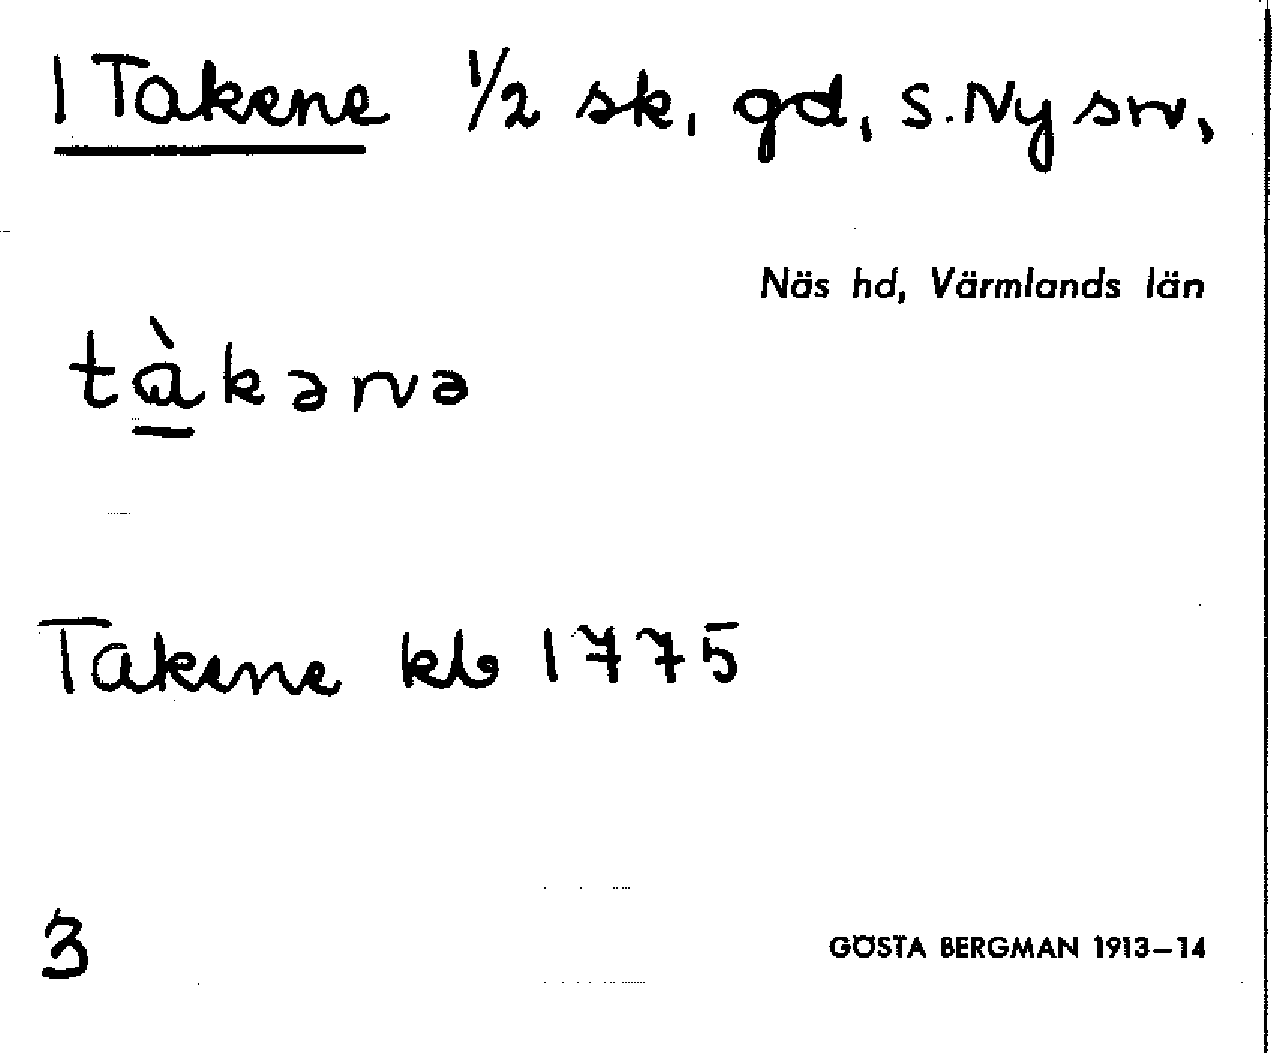 1 Takene 1/2 sk, gd, S. Ny sn,
Näs hd, Värmlands län
tàkənə
Takene kb 1775
3
GÖSTA BERGMAN 1913–14